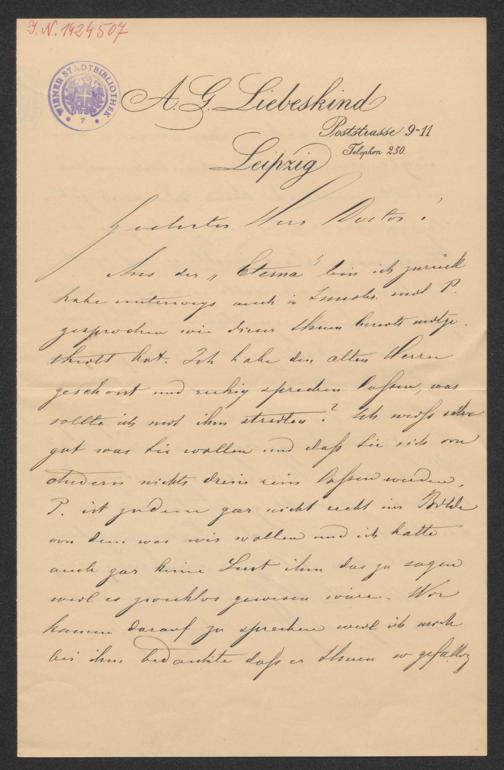 J.N. 1424507
WIENER STADTBIBLIOTHEK
* 7 *
A. G. Liebeskind
Poststrasse 9-11
Telephon 250.
Leipzig
Geehrter Herr Doctor!
Aus der „Eterna“ bin ich zurück
habe unterwegs auch in mit P.
gesprochen wie dieser Ihnen bereits mitge-
theilt hat. Ich habe den alten Herrn
geschont und ruhig sprechen lassen, was
sollte ich mit ihm streiten? Ich weiß sehr
gut was Sie wollen und daß Sie sich von
Andern nichts drein reden lassen werden.
P. ist zudem gar nicht recht im Bilde
von dem was wir wollen und ich hatte
auch gar keine Lust ihm das zu sagen
weil es zwecklos gewesen wäre. Wir
kamen darauf zu sprechen weil ich mich
bei ihm bedankte daß er Ihnen so gefällig